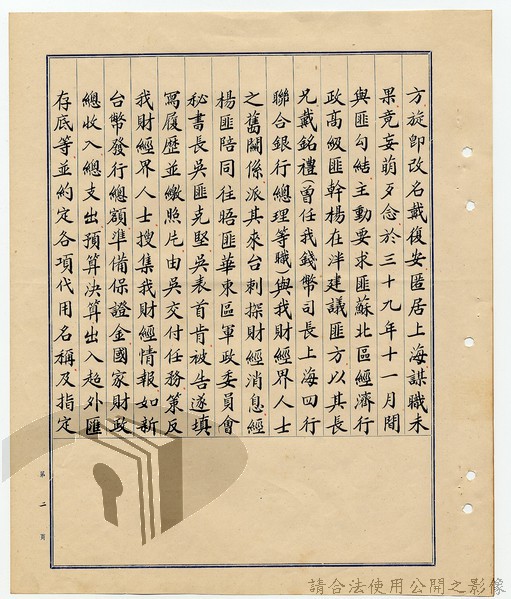 方旋卽改名戴復安匿居上海謀職未
果竟妄萌歹念於三十九年十一月間
與匪勾結主動要求匪蘇北區經濟行
政高級匪幹楊在泮建議匪方以其長
兄戴銘禮曾任我錢幣司長上海四行
聯合銀行總理等職)與我財經界人士
之舊關係派其來台刺探財經消息經
楊匪陪同往晤匪華東區軍政委員會
秘書長吳匪克堅吳表首肯被告遂填
寫履歷並繳照片由吳交付任務策反
我財經界人士搜集我財經情報如新
台幣發行總額準備保證金國家財政
總收入總支出預算決算出入超外匯
存底等並約定各項代用名稱及指定
第二頁
請合法使用公開之影像